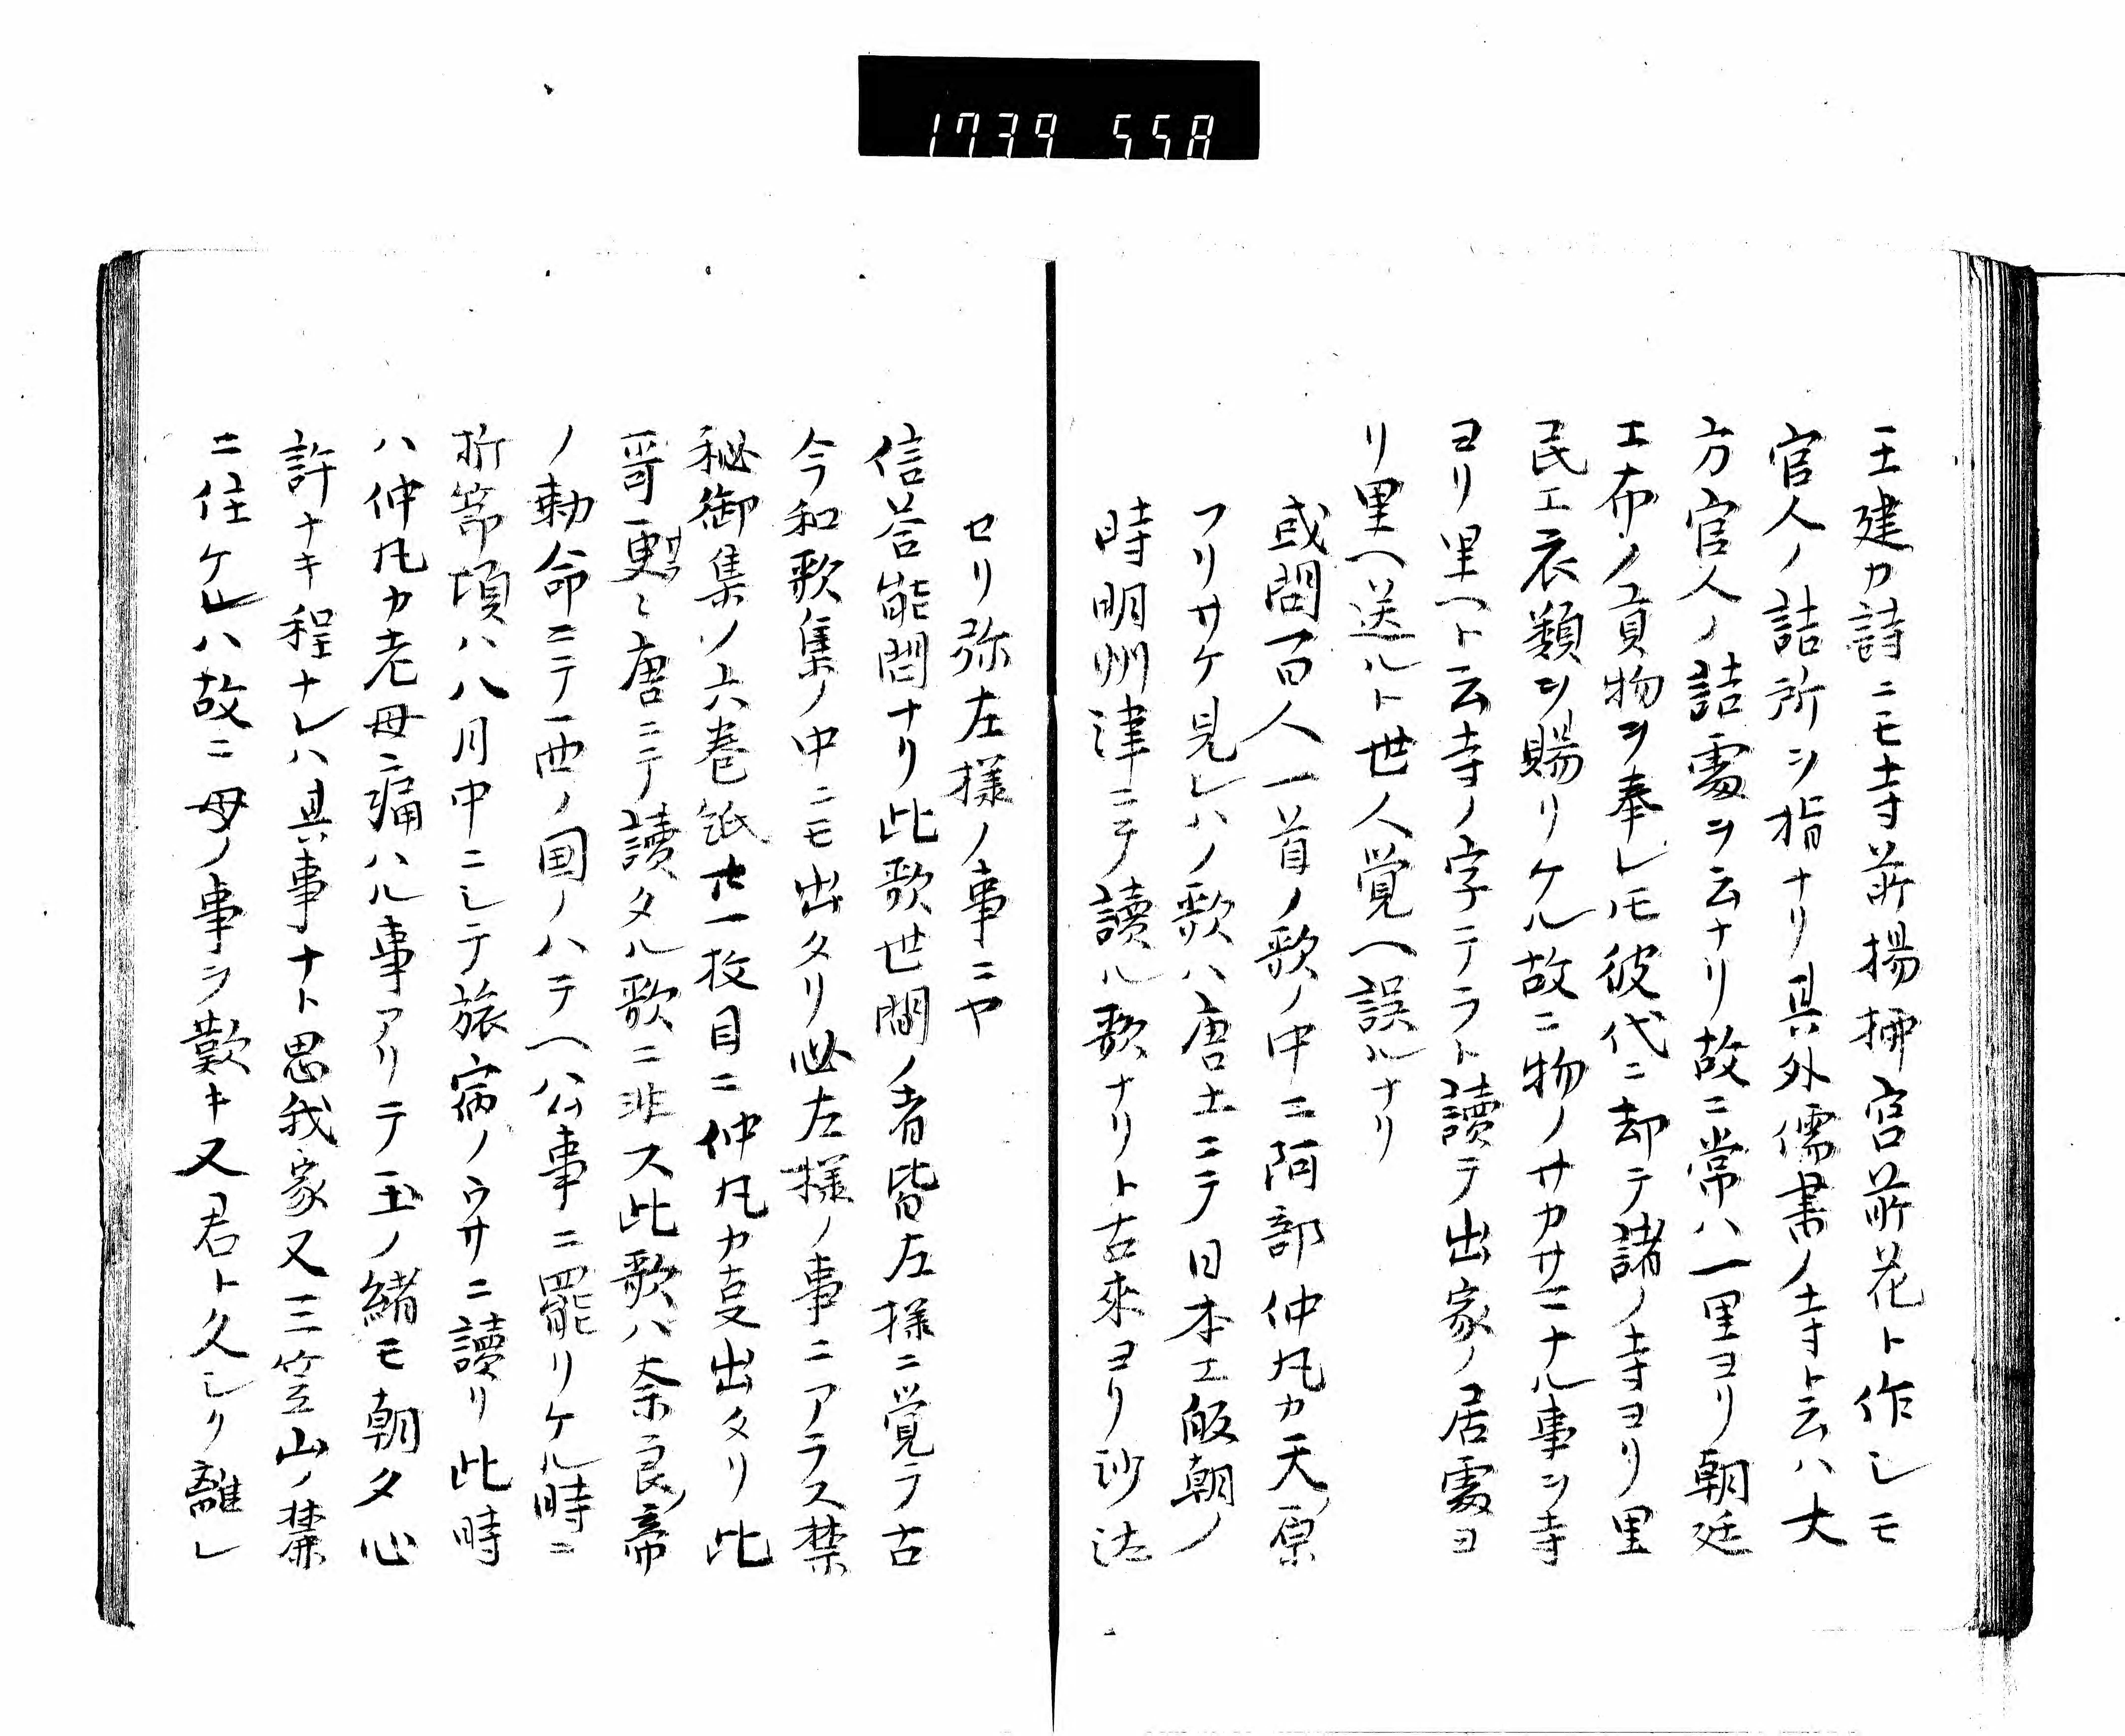 1739 558
王建カ詩ニモ寺前揚挿宮前花ト作レモ
官人ノ詰所ヲ指ナリ具外儒書ノ寺ト云ハ大
方官人ノ詰處ヲ云ナリ故ニ常ハ一里ヨリ朝廷
エ布ノ貢物ヲ奉レハ彼代ニ却テ諸ノ寺ヨリ里
民エ衣類ヲ賜リケル故ニ物ノサカサニナル事ヲ寺
ヨリ里ヘト云寺ノ字テラト讀テ出家ノ居處ヨ
リ里ヘ送ルト世人覚ヘ誤ルナリ
或問百人一首ノ歌ノ中ニ阿部仲凡カ天原
フリサケ見レハノ歌ハ唐土ニテ日本エ皈朝ノ
時明州津ニテ讀ル歌ナリト古來ヨリ沙汰
セリ弥左様ノ事ニヤ
信荅能問ナリ此歌世間ノ者皆左様ニ覚ラ古
今和歌集ノ中ニモ出タリ必左様ノ事ニアラス禁
秘御集ノ六巻紙廿一枚目ニ仲凡カ支出タリ此
哥更ニ唐ニテ讀タル歌ニ非ス此歌ハ奈良帝
ノ勅命ニテ西ノ国ノハテヘ公事ニ罷リケル時ニ
折節頃ハ八月中ニシテ旅宿ノウサニ讀リ此時
ハ仲凡カ老母ニ痛ハル事アリテ玉ノ緒モ朝夕心
許ナキ程ナレハ具事ナト思我家又三笠山ノ麓
ニ住ケレハ故ニ母ノ事ヲ歎キ又君ト久シク離レ